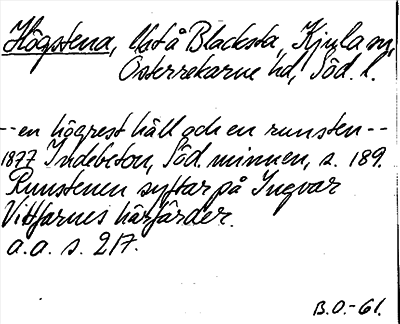 Högstena, Västå Blacksta, Kjula sn,
Österrekarne hd, Söd. l.
--en högrest häll och en runsten--
1877 Indebetou, Söd. minnen, s. 189.
Runstenen syftar på Ingvar
Vittfarnes härfärder.
a.a. s. 217.
B.O.-61.